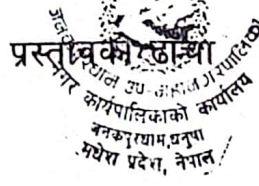 प्रस्तावको ढाँचा
नगर कार्यपालिकाको कार्यालय
जनकपुरधाम, धनुषा
मधेश प्रदेश, नेपाल